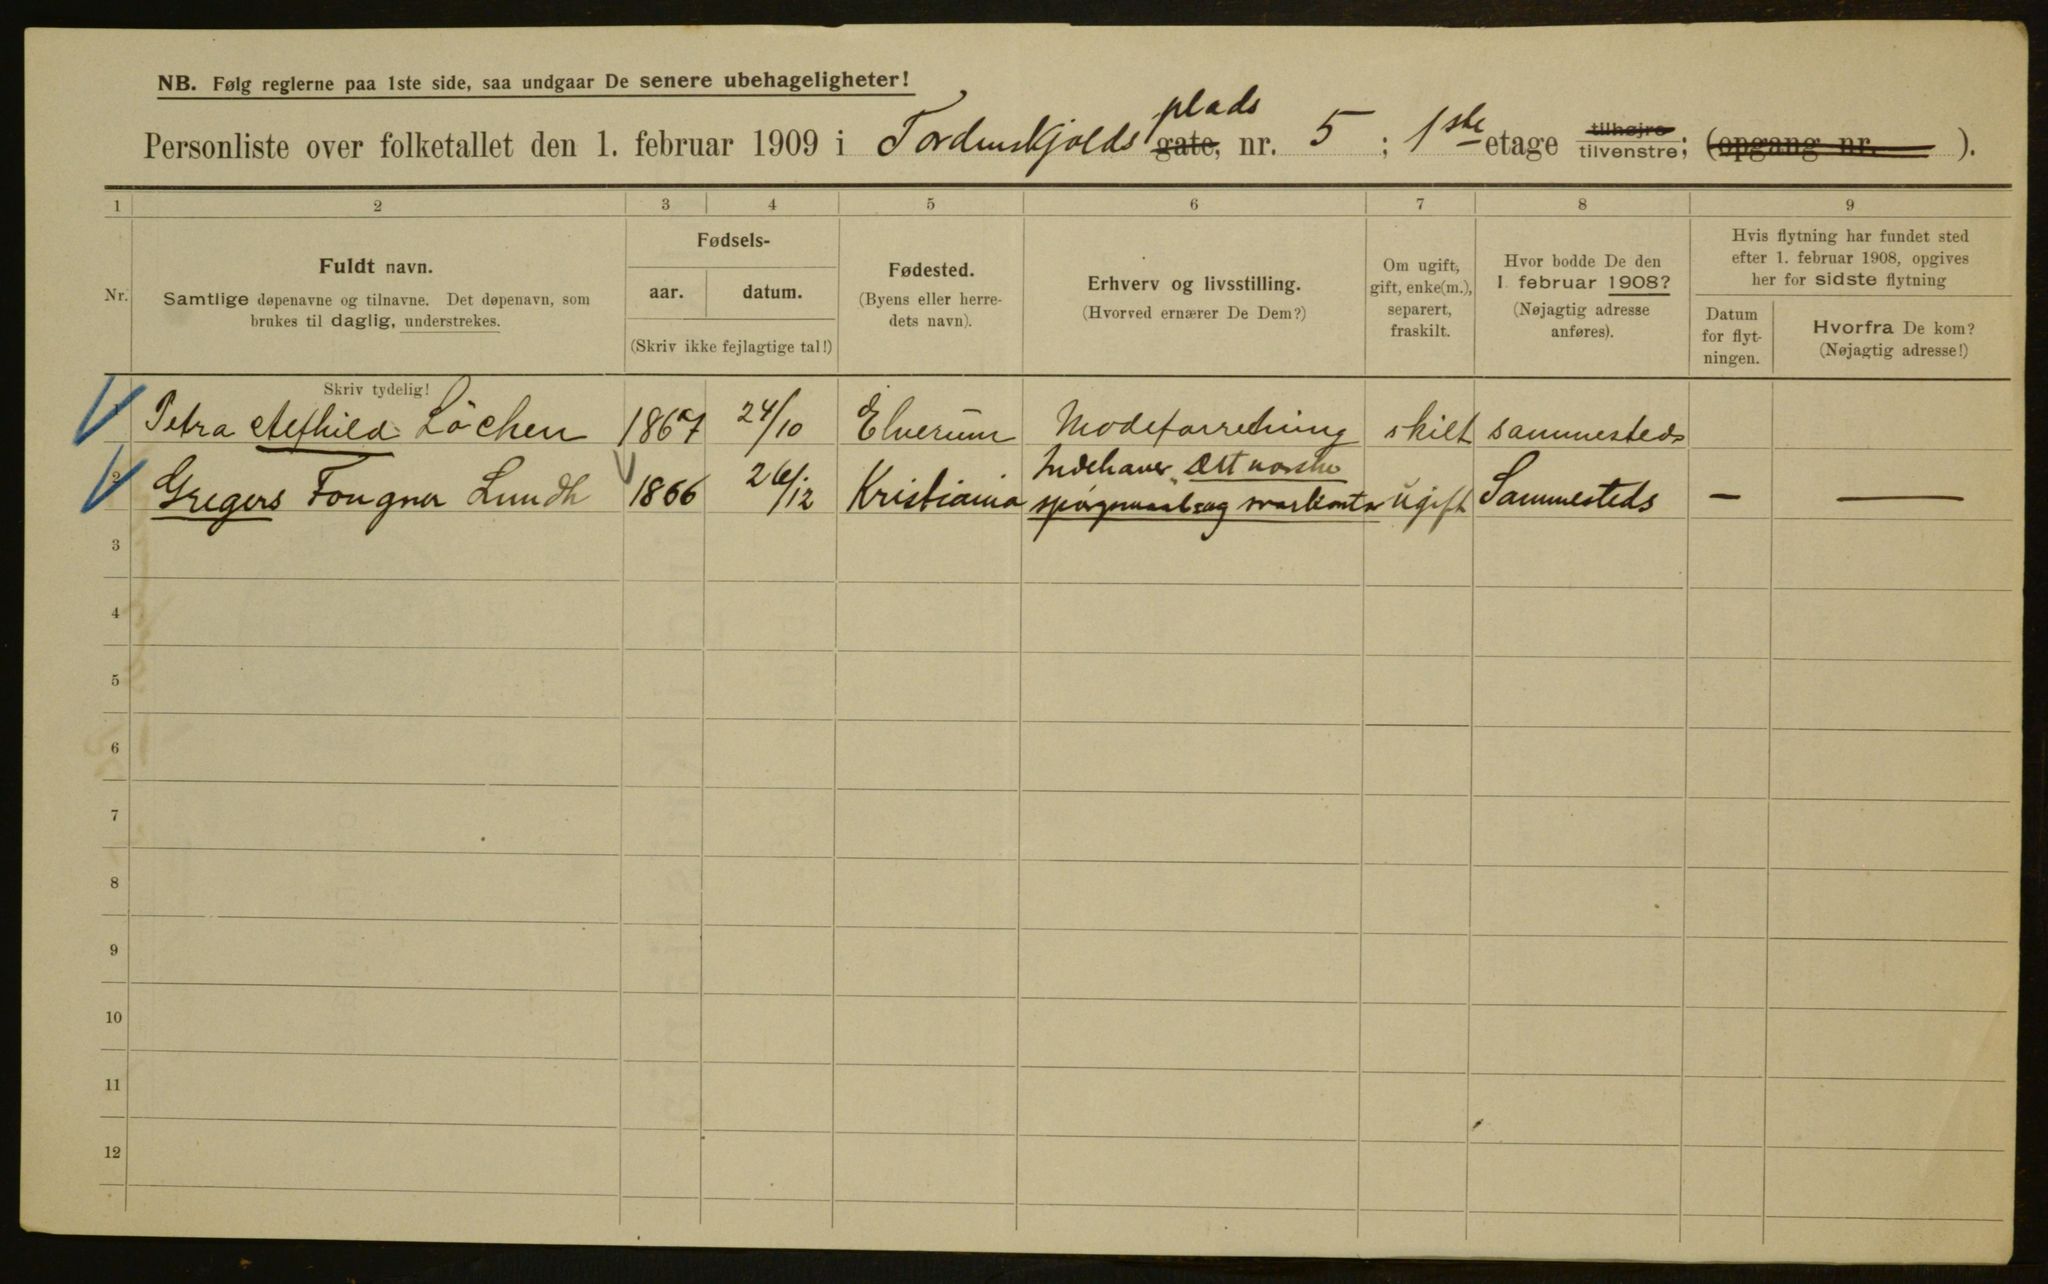 NB. Følg reglerne paa 1ste side, saa undgaar De senere ubehageligheter!
plads
Personliste over folketallet den 1. februar 1909 i Tordenskjolds gate, nr. 5 ; 1ste etage tilhøjre tilvenstre; (opgang nr. ).
1 2 3 4 5 6 7 8 9
Nr.
Fuldt navn.
Samtlige døpenavne og tilnavne. Det døpenavn, som
brukes til daglig, understrekes.
Skriv tydelig!
Fødsels-
aar. datum.
(Skriv ikke fejlagtige tal!)
Fødested.
(Byens eller herre-
dets navn).
Erhverv og livsstilling.
(Hvorved ernærer De Dem?)
Om ugift,
gift, enke(m.),
separert,
fraskilt.
Hvor bodde De den
1 februar 1908?
(Nøjagtig adresse
anføres).
Hvis flytning har fundet sted
efter 1. februar 1908, opgives
her for sidste flytning
Datum
for flyt-
ningen.
Hvorfra De kom?
(Nøjagtig adresse!)
1 Petra Löchen 1867 24/10 Elverum Modeforretning skilt sammesteds
Indehaver Det norske
2 Gregers Fougner Lundh 1866 26/12 Kristiania spörgsmaal og svarkontor ugift Sammesteds — —
3
4
5
6
7
8
9
10
11
12